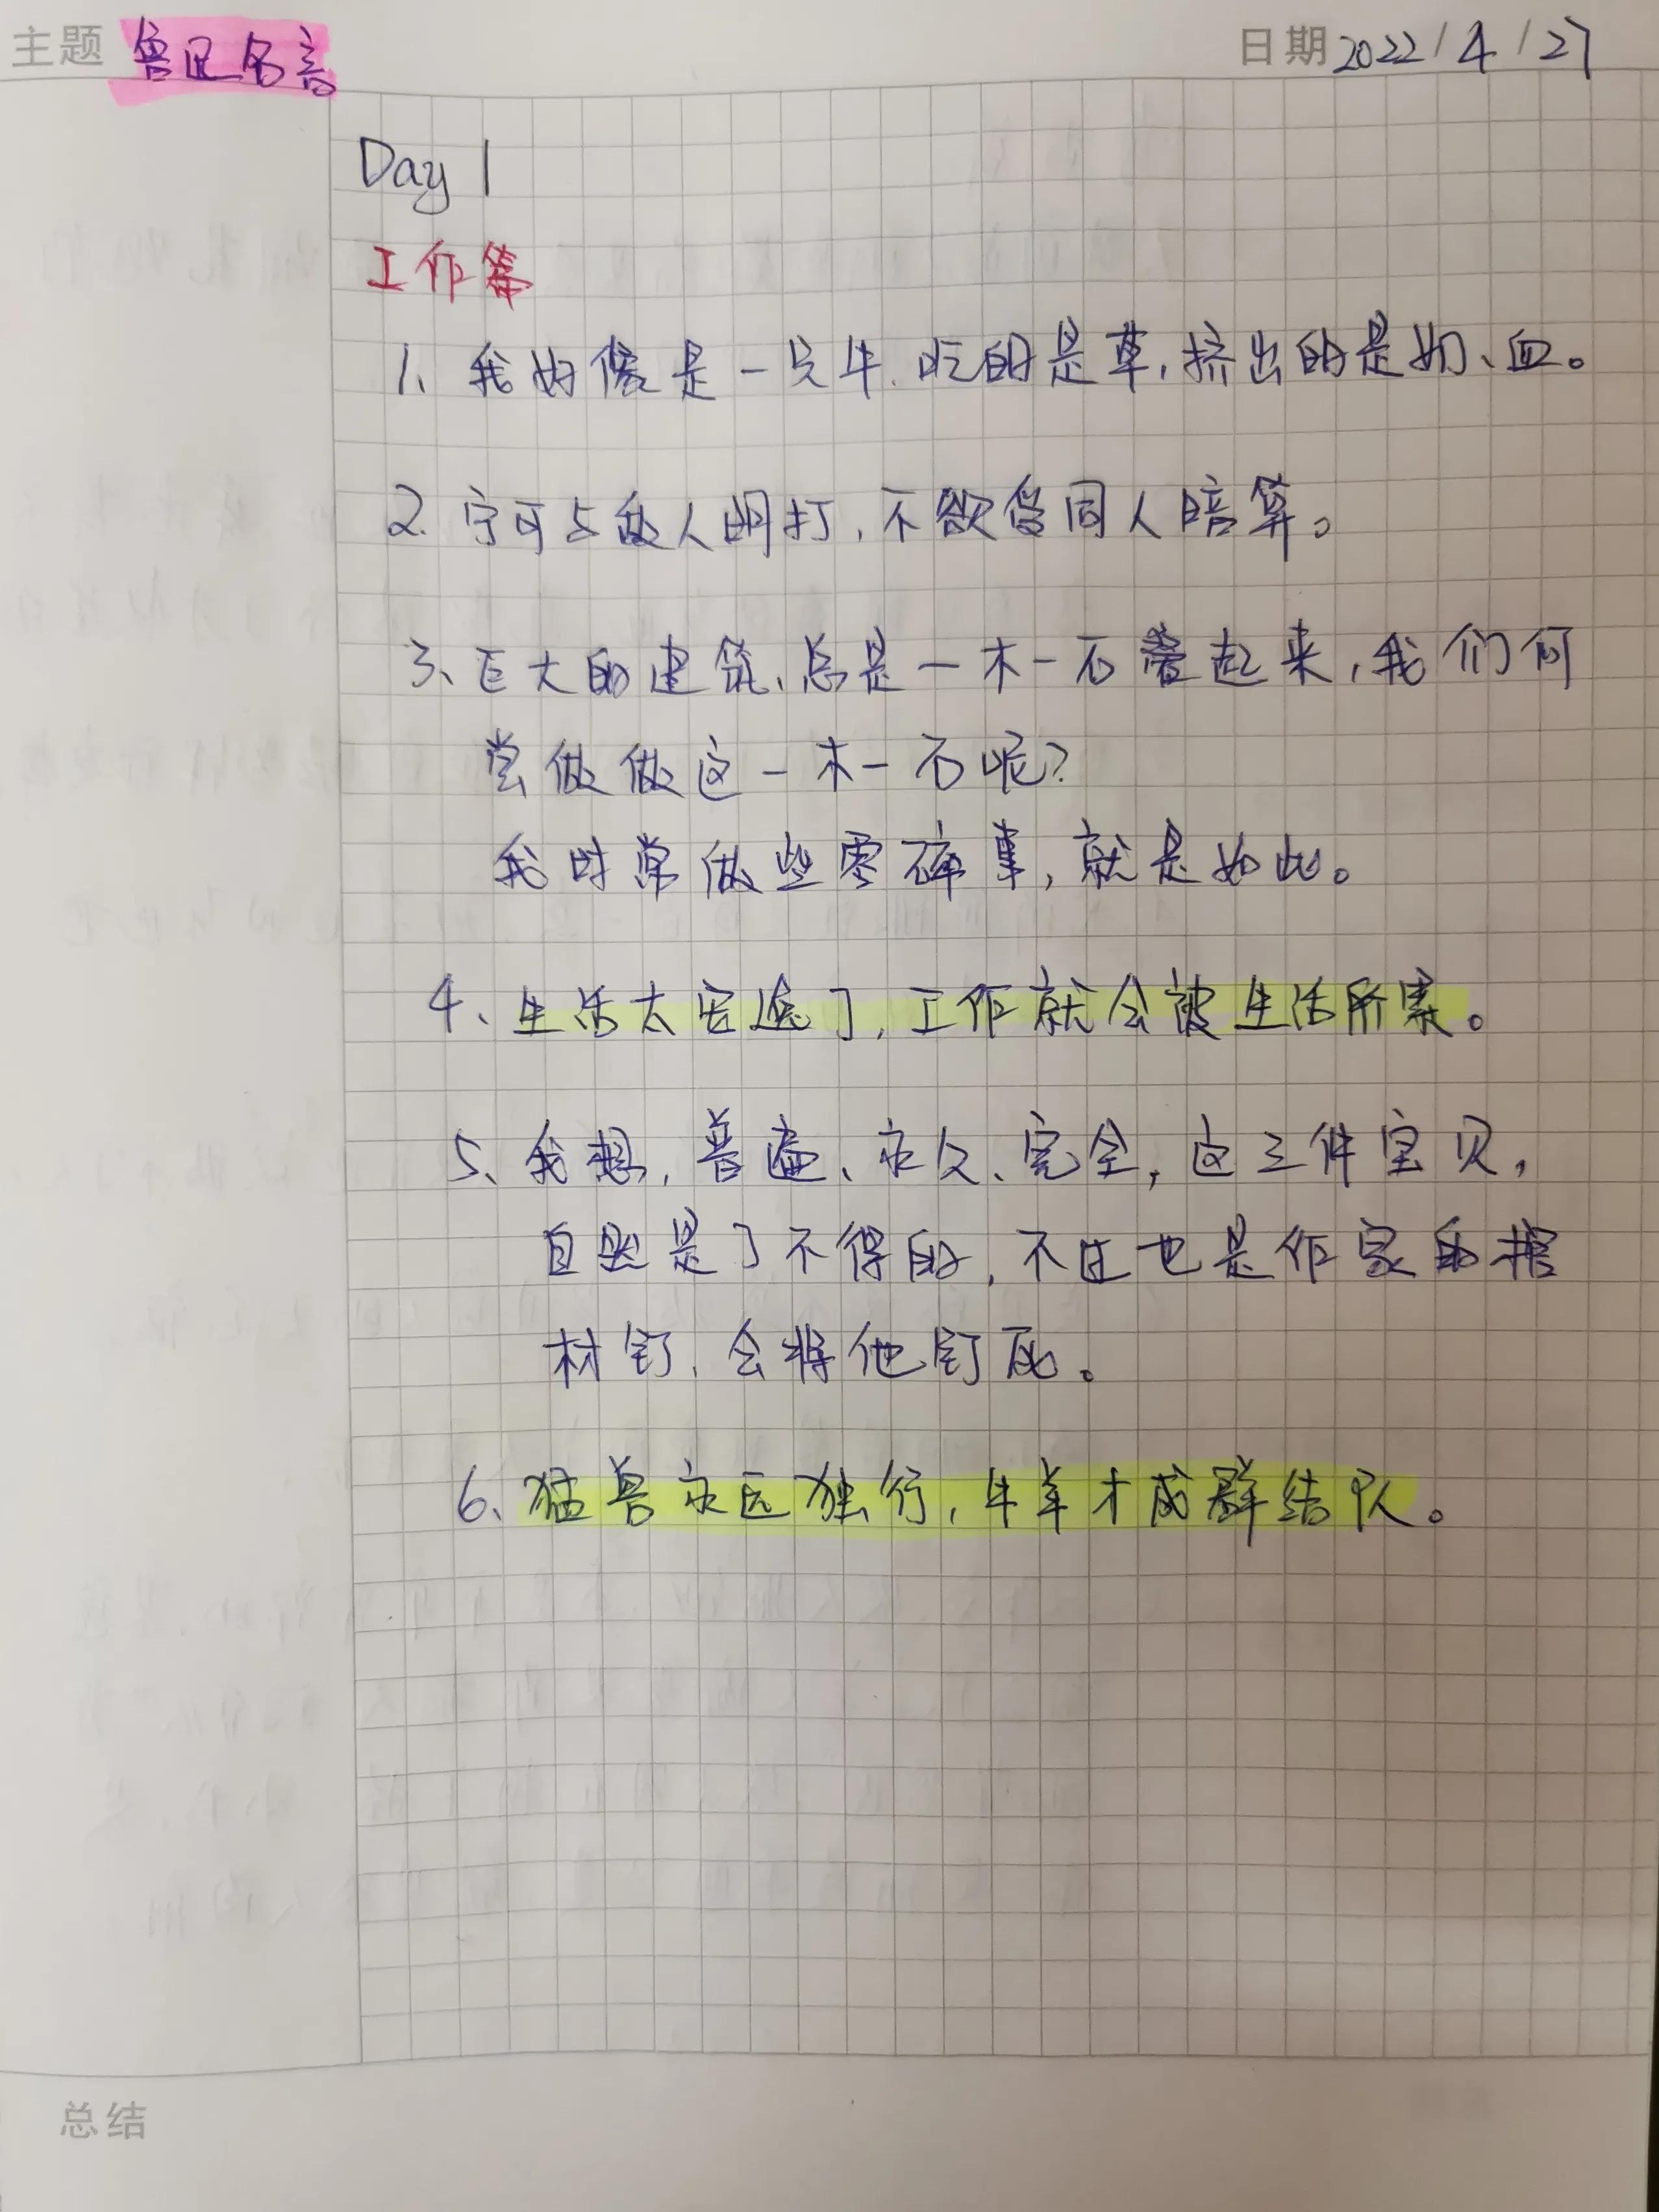 主题 鲁迅名言 日期 2022/4/27
Day 1
工作篇
1、我好像是一只牛,吃的是草,挤出的是奶、血。
2. 宁可与敌人明打,不欲受同人暗算。
3、巨大的建筑,总是一木一石叠起来,我们何
尝做做这一木一石呢?
我时常做些零碎事,就是如此。
4、生活太安逸了,工作就会被生活所累。
5、我想,普遍、永久、完全,这三件宝贝,
自然是了不得的,不过也是作家的棺
材钉,会将他钉死。
6、猛兽永远独行,牛羊才成群结队。
总结